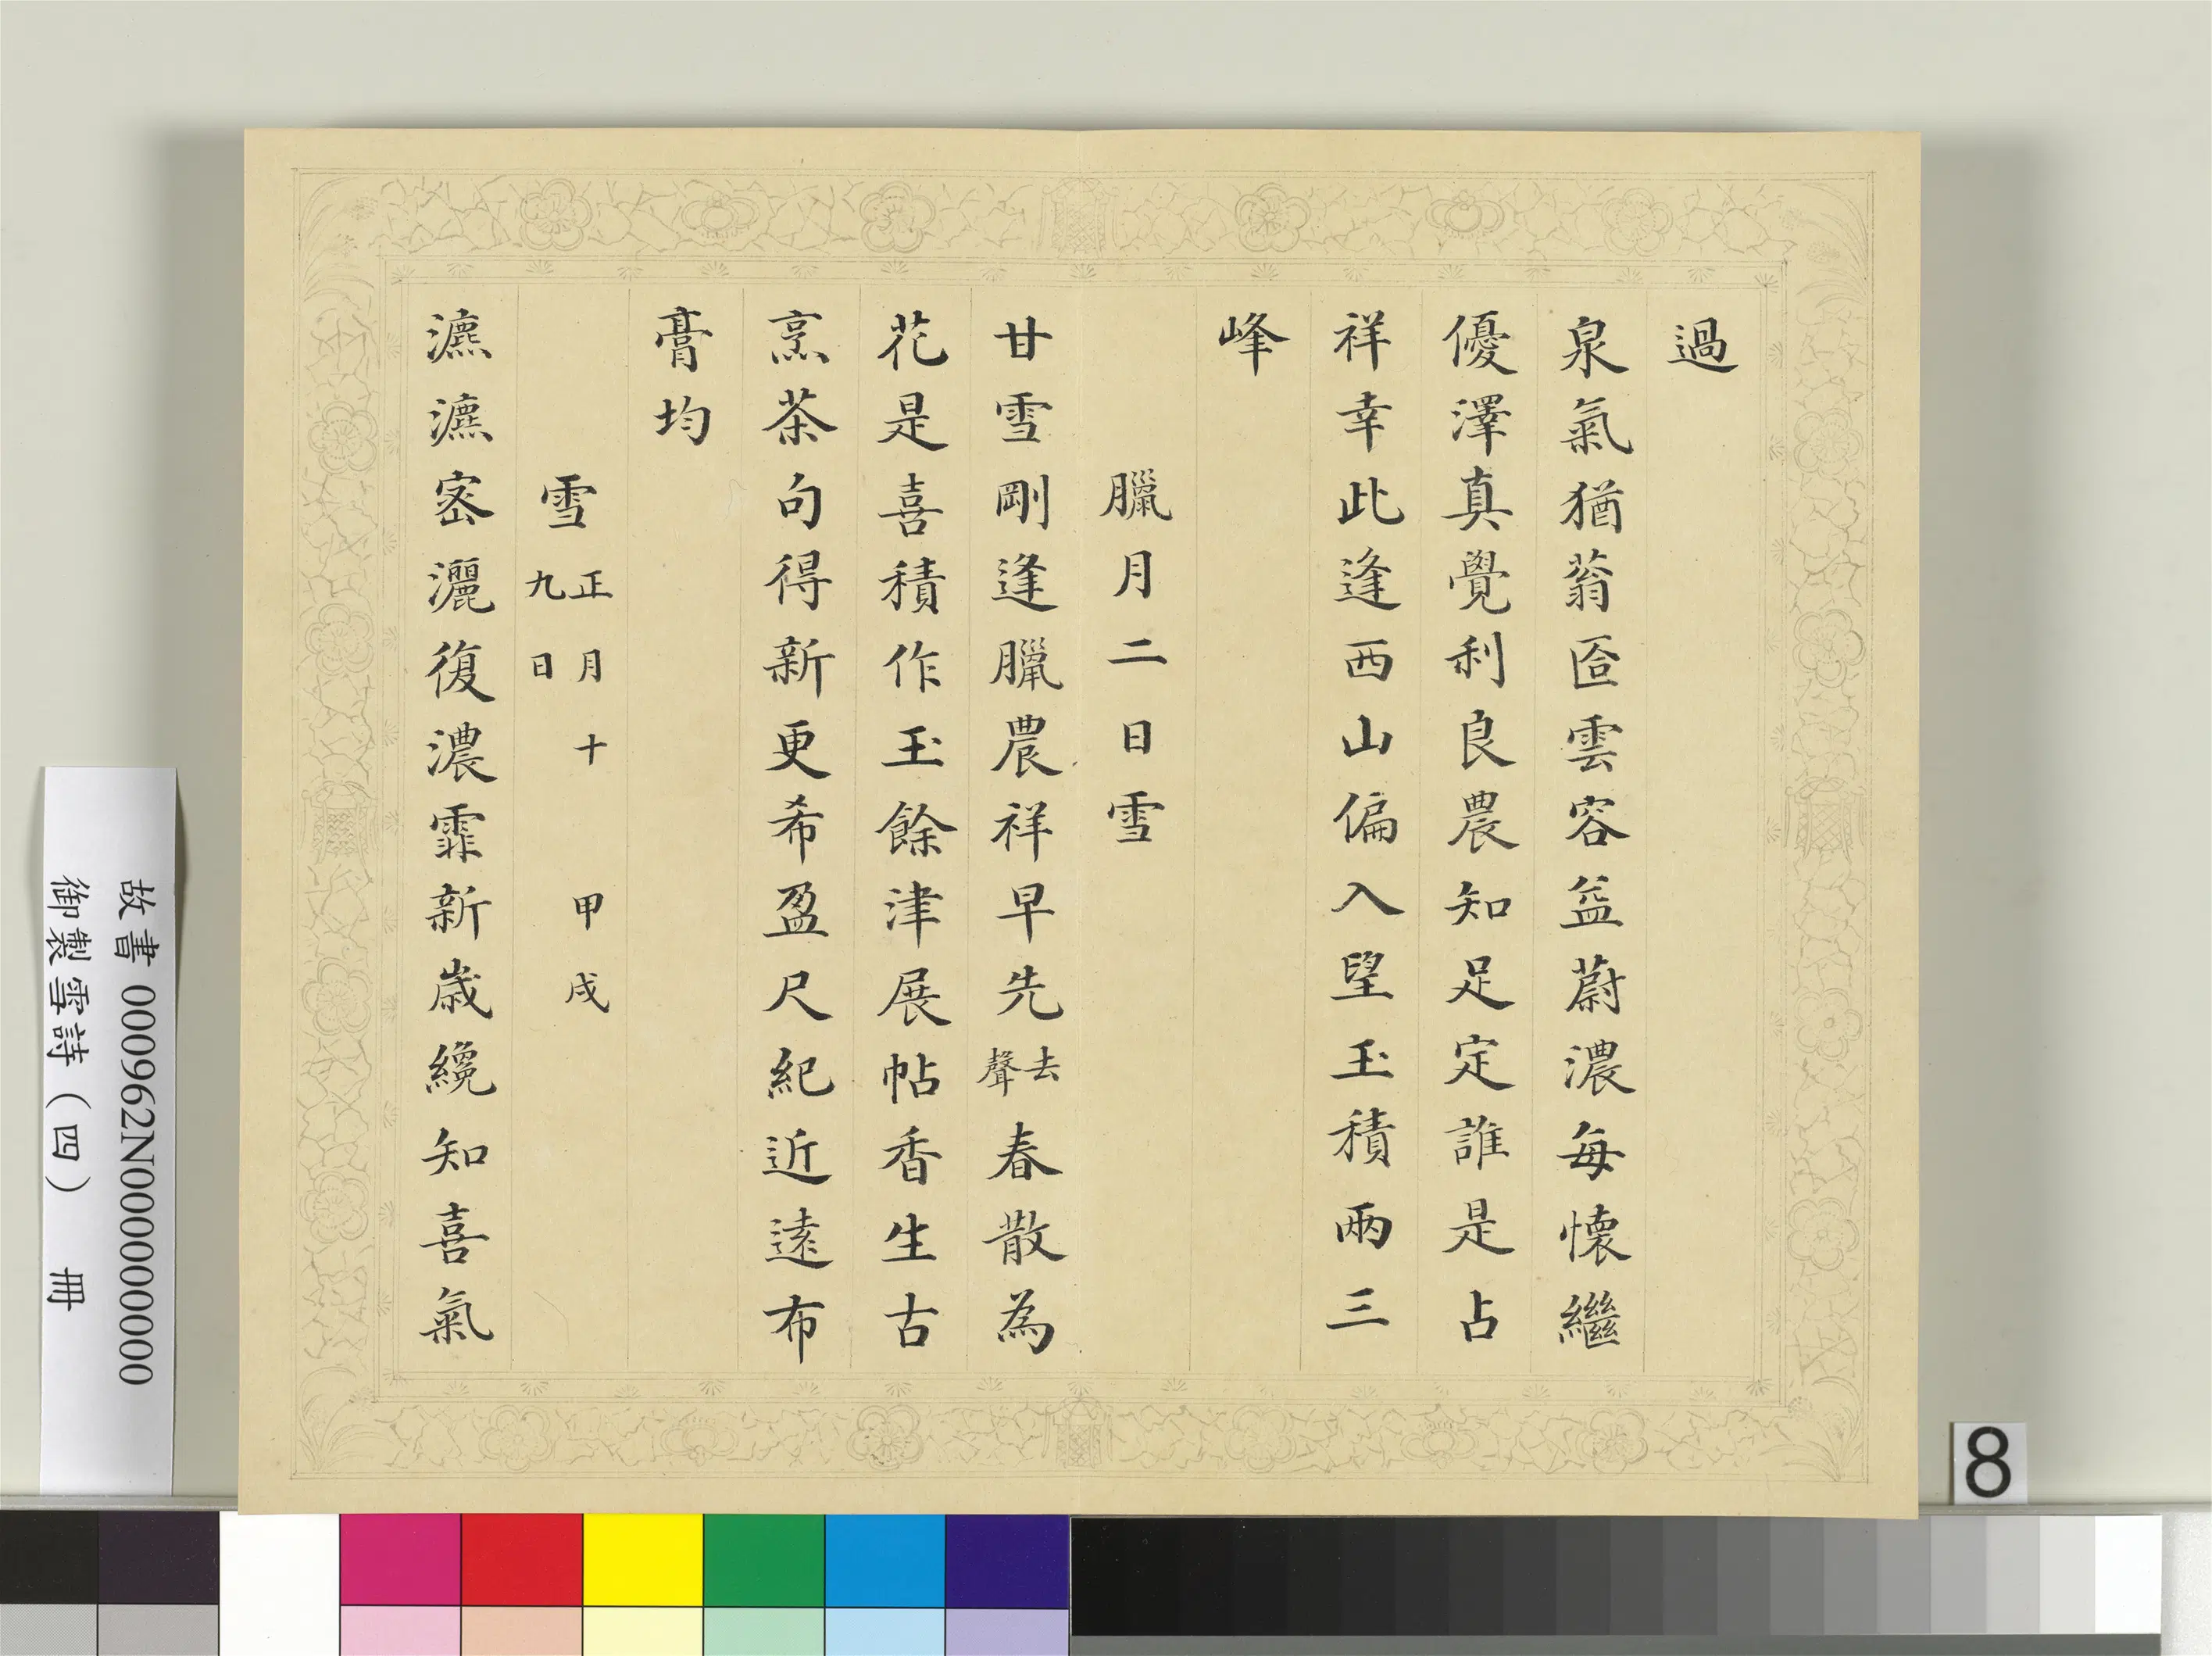 過
泉氣猶蓊匼雲容益蔚濃每懷繼
優澤真覺利良農知足定誰是占
祥幸此逢西山偏入望玉積兩三
峰
臘月二日雪
甘雪剛逢臘農祥早先去聲春散為
花是喜積作玉餘津展帖香生古
烹茶句得新更希盈尺紀近遠布
膏均
雪正月十九日 甲戌
瀌瀌密灑復濃霏新歲纔知喜氣
故書 000962N000000000
御製雪詩(四) 冊
8